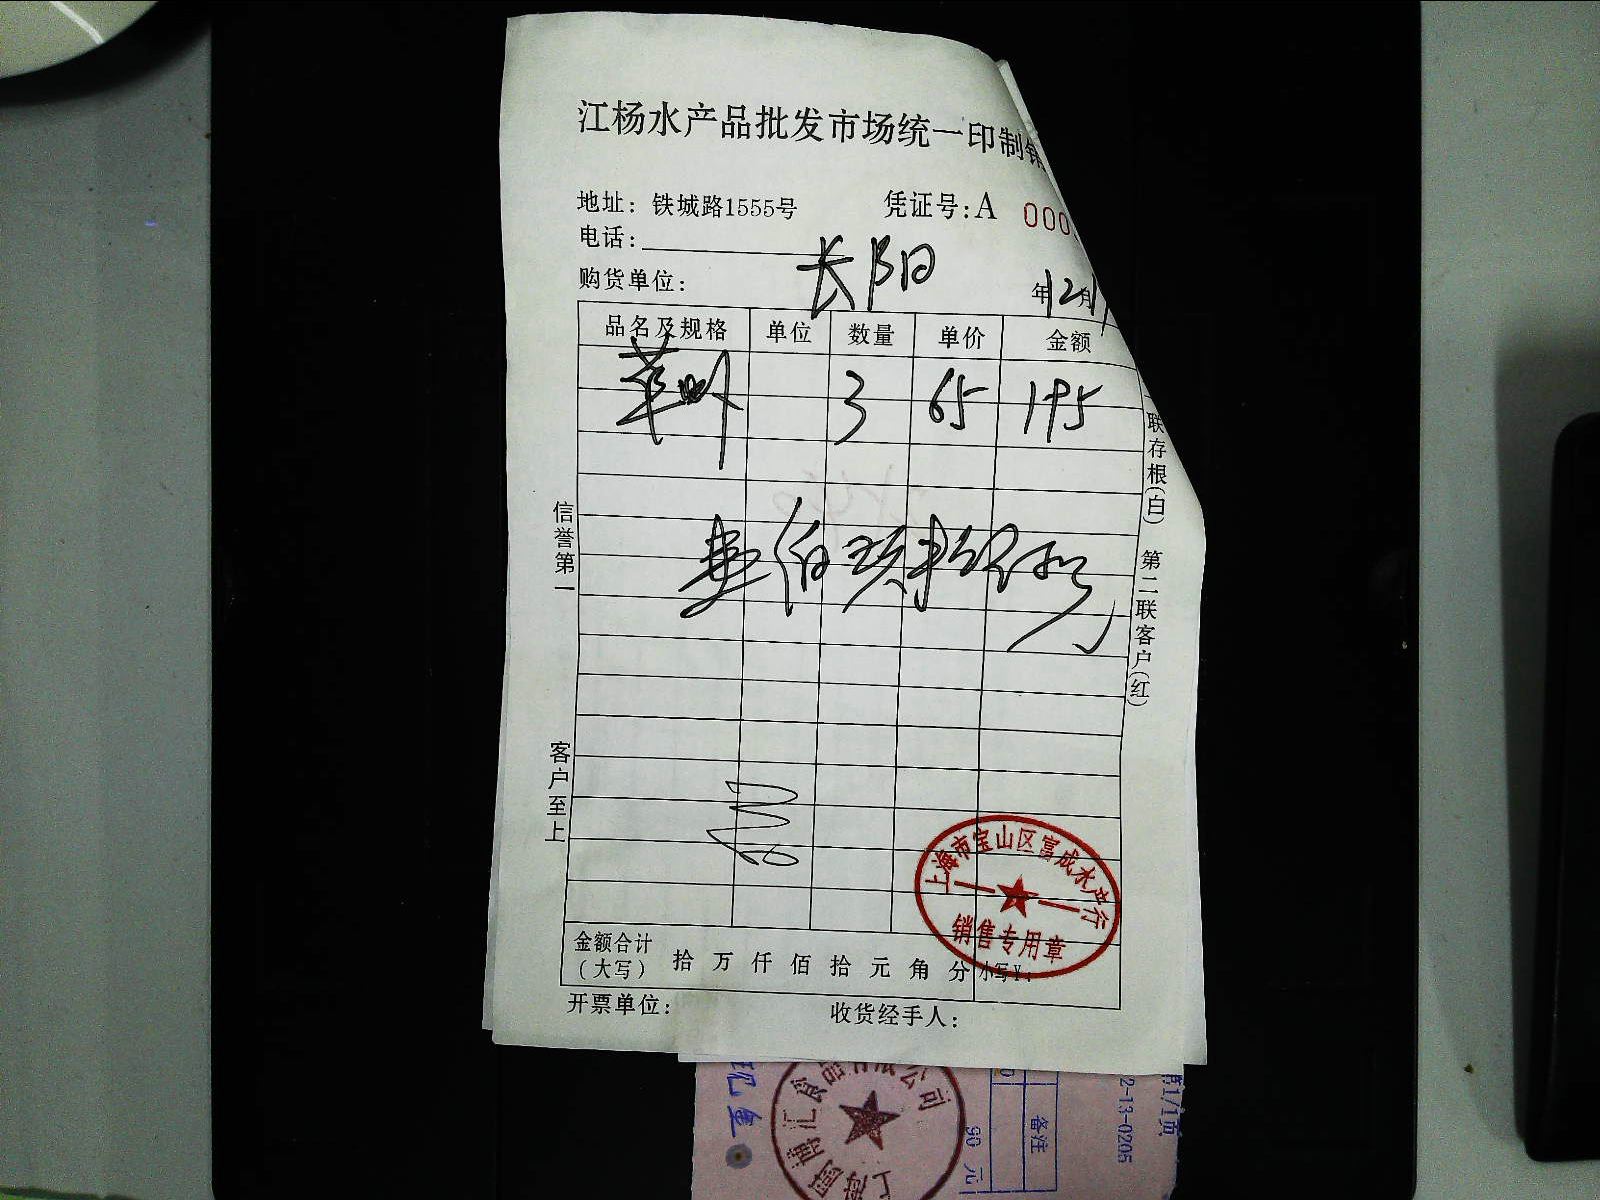 江杨水产品批发市场统一印制销
地址：铁城路1555号 凭证号：A 000
电话：
购货单位： 长阳 年12月
品名及规格 单位 数量 单价 金额
3 65 195
信誉第一
客户至上
联存根(白) 第二联客户(红)
上海市宝山区富成水产行
销售专用章
金额合计
（大写） 拾 万 仟 佰 拾 元 角 分 小写¥：
开票单位： 收货经手人：
食品有限公司
备注
90 元
2-13-0205
第1/1页